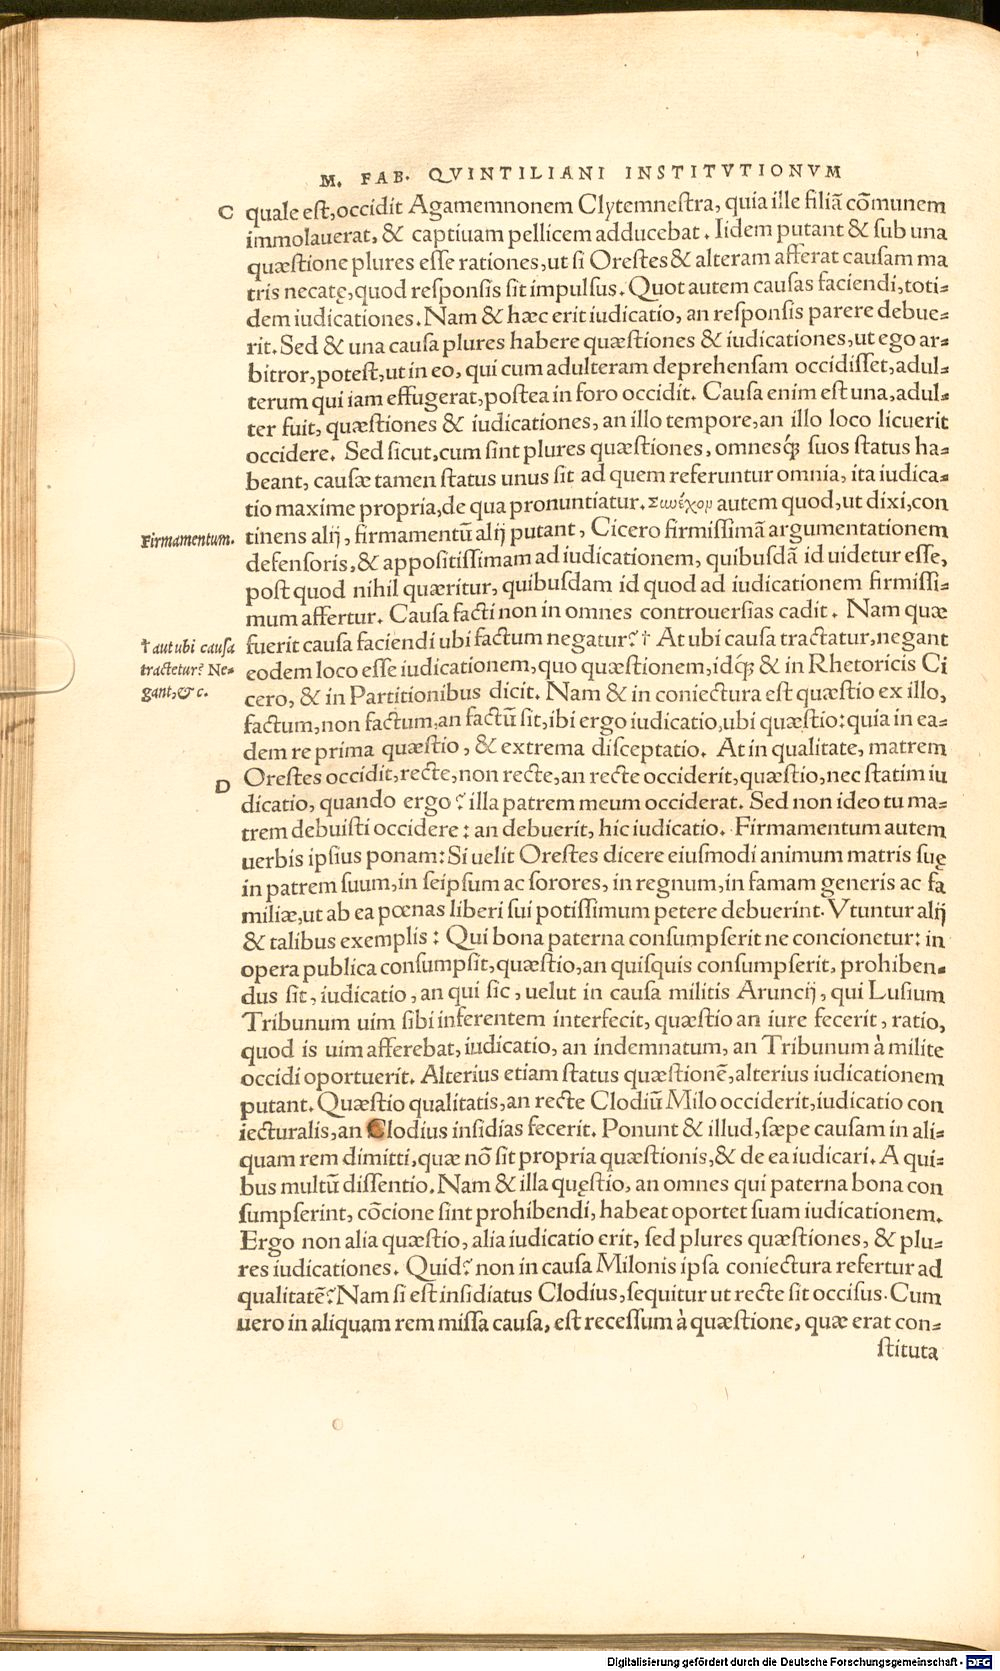 M. FAB. QVINTILIANI INSTITVTIONVM
C quale est, occidit Agamemnonem Clytemnestra, quia ille filiā cōmunem
immolauerat, & captiuam pellicem adducebat. Iidem putant & sub una
quæstione plures esse rationes, ut si Orestes & alteram afferat causam ma
tris necatę, quod responsis sit impulsus. Quot autem causas faciendi, toti=
dem iudicationes. Nam & hæc erit iudicatio, an responsis parere debue=
rit. Sed & una causa plures habere quæstiones & iudicationes, ut ego ar=
bitror, potest, ut in eo, qui cum adulteram deprehensam occidisset, adul=
terum qui iam effugerat, postea in foro occidit. Causa enim est una, adul=
ter fuit, quæstiones & iudicationes, an illo tempore, an illo loco licuerit
occidere. Sed sicut, cum sint plures quæstiones, omnesq́; suos status ha=
beant, causæ tamen status unus sit ad quem referuntur omnia, ita iudica=
tio maxime propria, de qua pronuntiatur. Συνέχον autem quod, ut dixi, con
Firmamentum. tinens alij, firmamentū alij putant, Cicero firmissimā argumentationem
defensoris, & appositissimam ad iudicationem, quibusdā id uidetur esse,
post quod nihil quæritur, quibusdam id quod ad iudicationem firmissi=
mum affertur. Causa facti non in omnes controuersias cadit. Nam quæ
† aut ubi causa fuerit causa faciendi ubi factum negatur? † At ubi causa tractatur, negant
tractetur? Ne= eodem loco esse iudicationem, quo quæstionem, idq́; & in Rhetoricis Ci
gant, &c. cero, & in Partitionibus dicit. Nam & in coniectura est quæstio ex illo,
factum, non factum, an factū sit, ibi ergo iudicatio, ubi quæstio: quia in ea=
dem re prima quæstio, & extrema disceptatio. At in qualitate, matrem
D Orestes occidit, recte, non recte, an recte occiderit, quæstio, nec statim iu
dicatio, quando ergo? illa patrem meum occiderat. Sed non ideo tu ma=
trem debuisti occidere: an debuerit, hic iudicatio. Firmamentum autem
uerbis ipsius ponam: Si uelit Orestes dicere eiusmodi animum matris suę
in patrem suum, in seipsum ac sorores, in regnum, in famam generis ac fa
miliæ, ut ab ea pœnas liberi sui potissimum petere debuerint. Vtuntur alij
& talibus exemplis: Qui bona paterna consumpserit ne concionetur: in
opera publica consumpsit, quæstio, an quisquis consumpserit, prohiben=
dus sit, iudicatio, an qui sic, uelut in causa militis Aruncij, qui Lusium
Tribunum uim sibi inferentem interfecit, quæstio an iure fecerit, ratio,
quod is uim afferebat, iudicatio, an indemnatum, an Tribunum à milite
occidi oportuerit. Alterius etiam status quæstionē, alterius iudicationem
putant. Quæstio qualitatis, an recte Clodiū Milo occiderit, iudicatio con
iecturalis, an Clodius insidias fecerit. Ponunt & illud, sæpe causam in ali=
quam rem dimitti, quæ nō sit propria quæstionis, & de ea iudicari. A qui=
bus multū dissentio. Nam & illa quęstio, an omnes qui paterna bona con
sumpserint, cōcione sint prohibendi, habeat oportet suam iudicationem.
Ergo non alia quæstio, alia iudicatio erit, sed plures quæstiones, & plu=
res iudicationes. Quid? non in causa Milonis ipsa coniectura refertur ad
qualitatē? Nam si est insidiatus Clodius, sequitur ut recte sit occisus. Cum
uero in aliquam rem missa causa, est recessum à quæstione, quæ erat con=
stituta
Digitalisierung gefördert durch die Deutsche Forschungsgemeinschaft - DFG